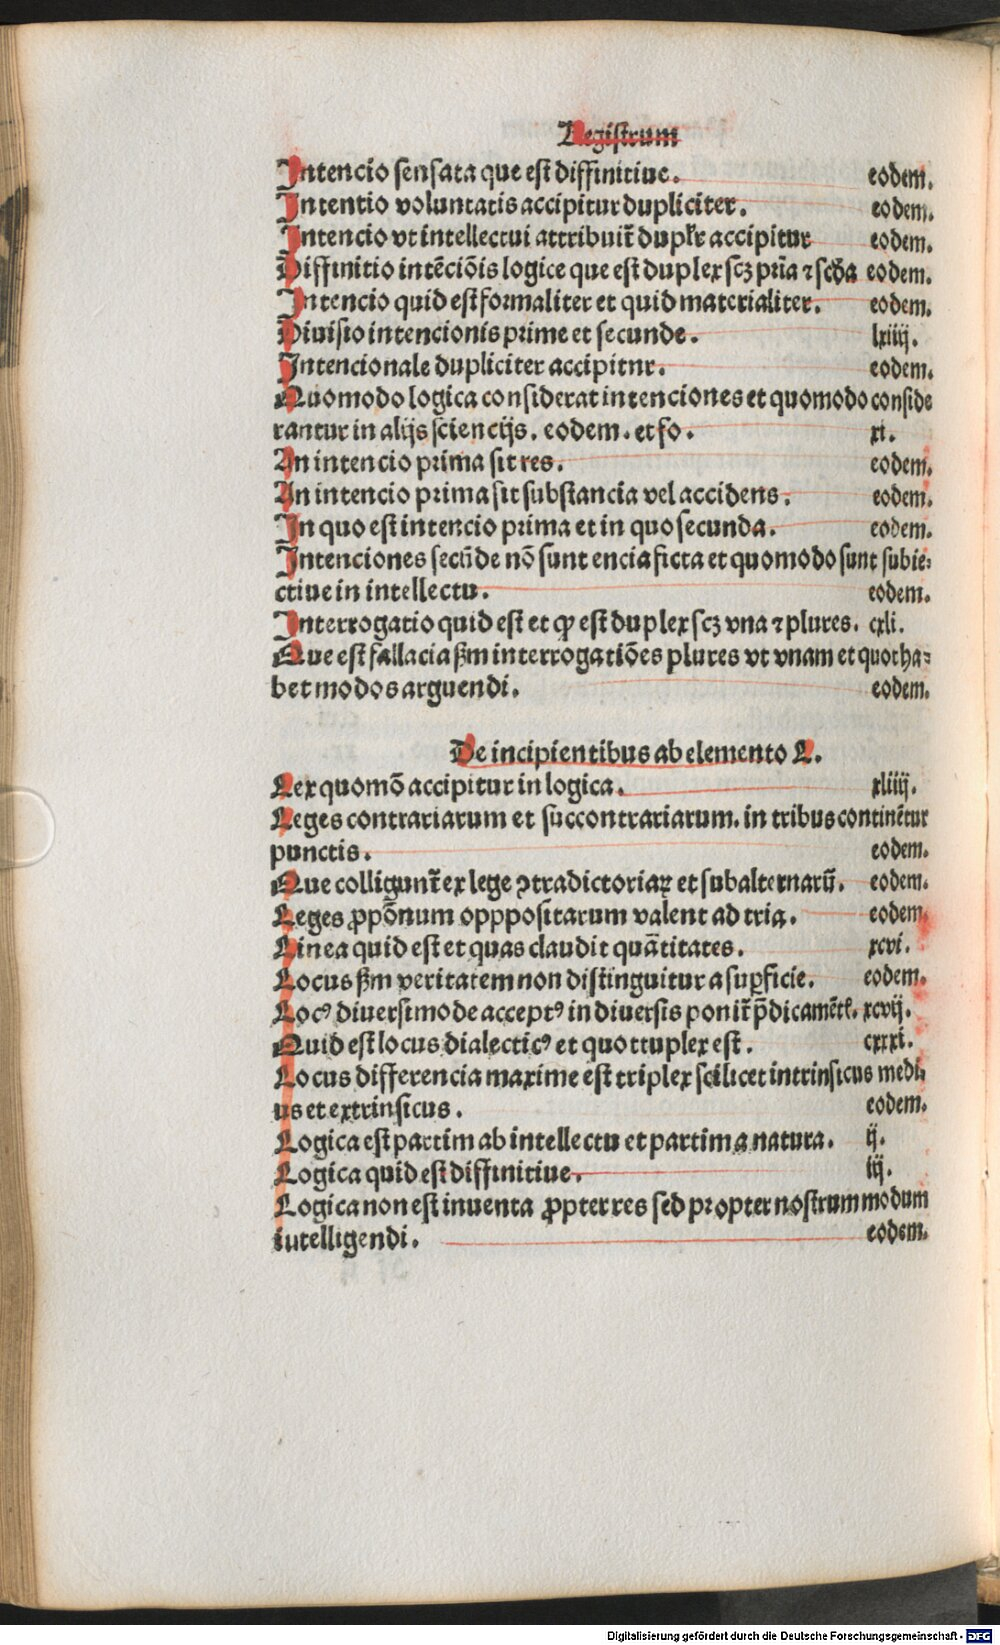 Registrum
Intencio sensata que est diffinitiue. eodem.
Intentio voluntatis accipitur dupliciter. eodem.
Intencio vt intellectui attribuit᷑ duplr̄ accipitur eodem.
Diffinitio intēciōis logice que est duplex scꝫ pria ⁊ scd̄a eodem.
Intencio quid est formaliter et quid materialiter. eodem.
Diuisio intencionis prime et secunde. lxiiij.
Intencionale dupliciter accipitnr. eodem.
Quomodo logica considerat intenciones et quomodo conside
rantur in alijs sciencijs. eodem. et fo. xi.
An intencio prima sit res. eodem.
An intencio prima sit substancia vel accidens. eodem.
In quo est intencio prima et in quo secunda. eodem.
Intenciones secūde nō sunt encia ficta et quomodo sunt subie⸗
ctiue in intellectu. eodem.
Interrogatio quid est et ꝙ est duplex scꝫ vna ⁊ plures. cxli.
Que est fallacia ßm interrogatiōes plures vt vnam et quot ha⸗
bet modos arguendi. eodem.
De incipientibus ab elemento L.
Lex quomō accipitur in logica. xliiij.
Leges contrariarum et succontrariarum. in tribus continētur
punctis. eodem.
Que colligunt᷑ ex lege ↄtradictoriaꝝ et subalternarū. eodem.
Leges ꝓpōnum opppositarum valent ad tria. eodem.
Linea quid est et quas claudit quātitates. xcvi.
Locus ßm veritatem non distinguitur a suꝑficie. eodem.
Locꝰ diuersimode acceptꝰ in diuersis ponit᷑ p̄dicamētꝭ. xcvij.
Quid est locus dialecticꝰ et quottuplex est. cxxxi.
Locus differencia maxime est triplex scilicet intrinsicus medi⸗
us et extrinsicus. eodem.
Logica est partim ab intellectu et partim a natura. ij.
Logica quid est diffinitiue. iij.
Logica non est inuenta ꝓpter res sed propter nostrum modum
iutelligendi. eodem.
Digitalisierung gefördert durch die Deutsche Forschungsgemeinschaft - DFG